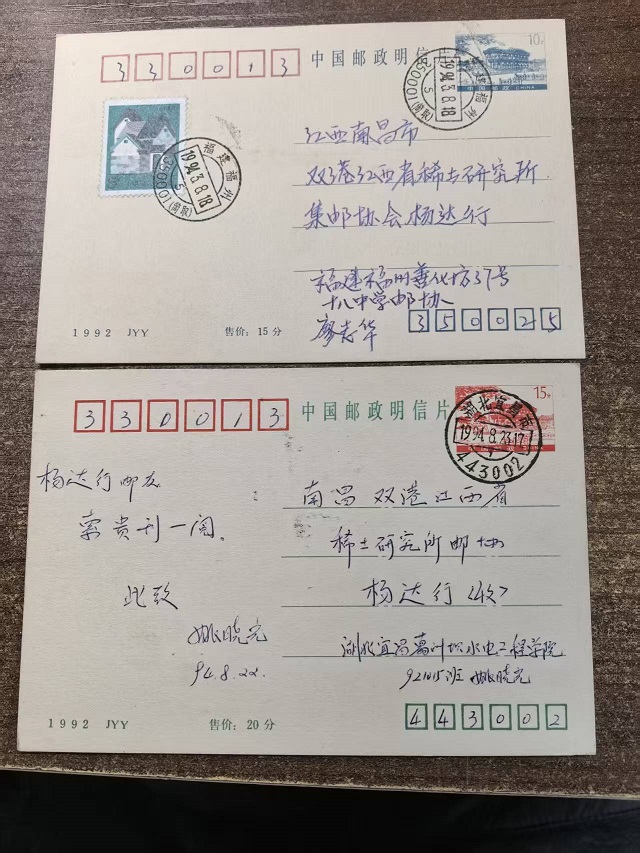 330013
中国邮政明信片
10分
中国邮政 CHINA
福建福州
1994.3.8.18
5
350001(前取)
福建福州
1994.3.8.18
5
350001(前取)
江西南昌市
双港江西省稀土研究所
集邮协会杨达行
福建福州善化坊37号
十八中学邮协
廖志华
350025
1992 JYY
售价：15分
330013
中国邮政明信片
15分
湖北宜昌市
1994.8.23.17
443002
杨达行邮友
索贵刊一阅。
此致
姚晓光
94.8.22.
南昌双港江西省
稀土研究所邮协
杨达行〈收〉
湖北宜昌葛洲坝水电工程学院
921015班 姚晓光
443002
1992 JYY
售价：20分